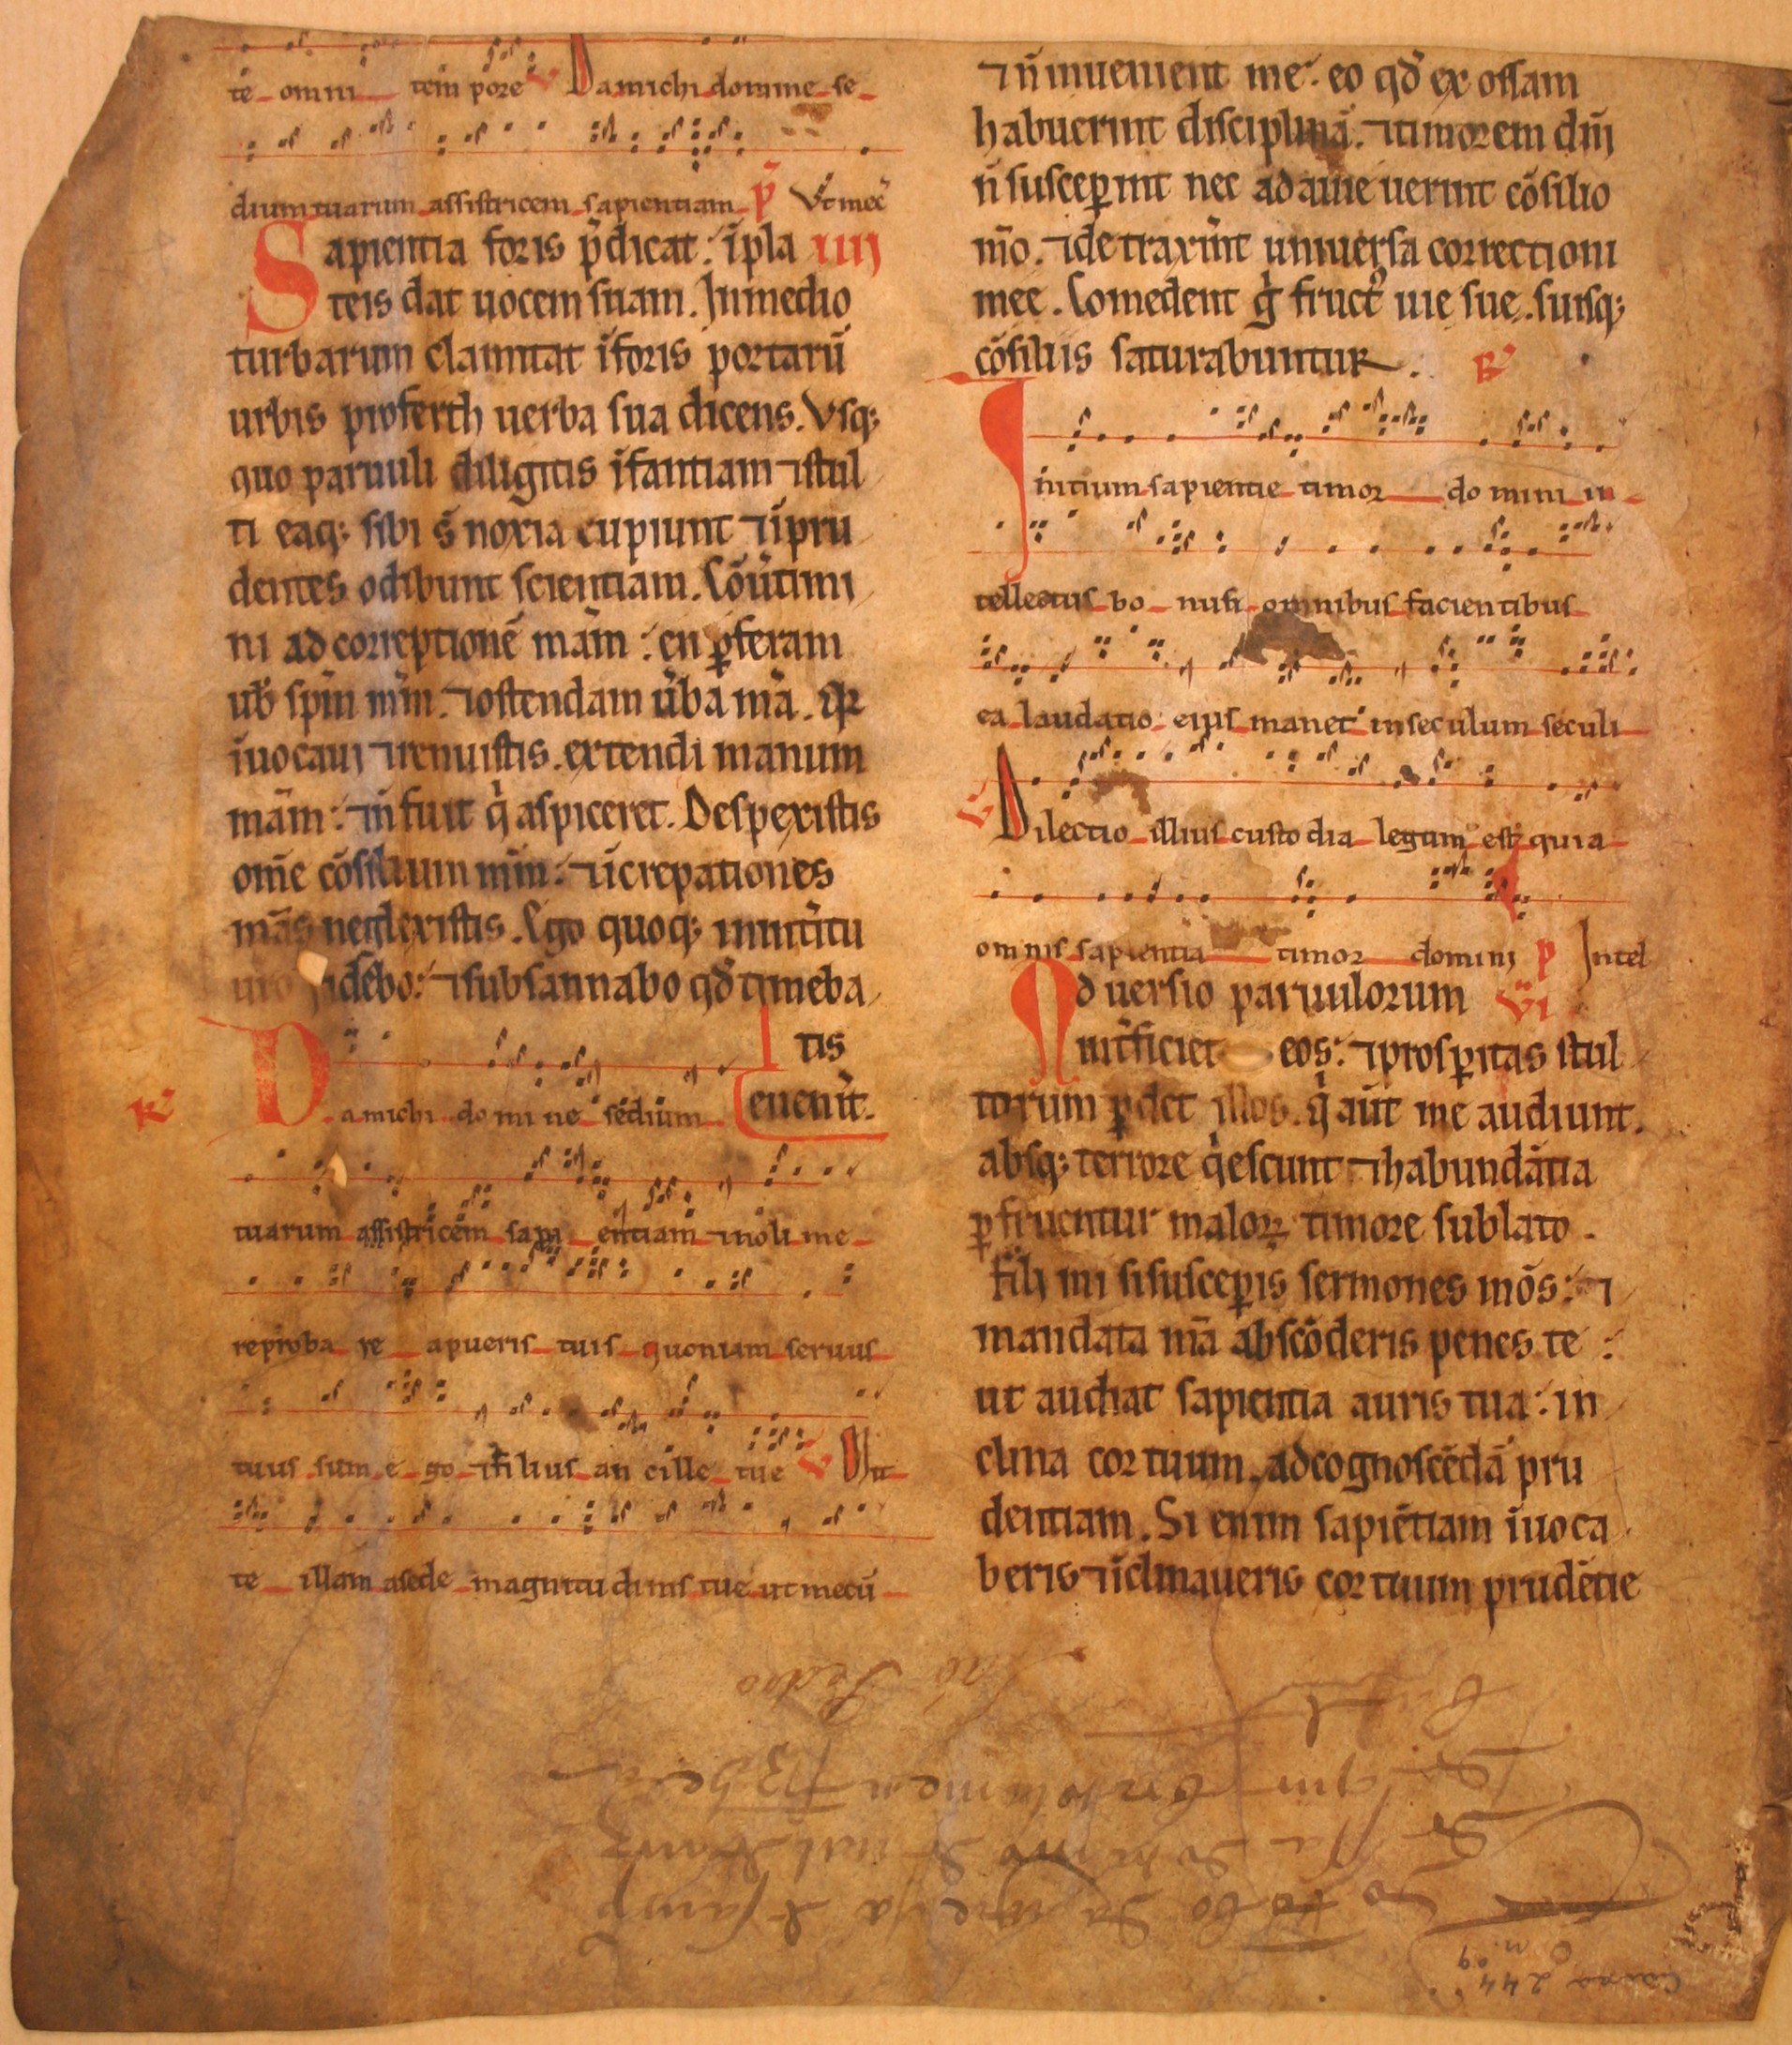 te omni tempore V Da michi domine se
dium tuarum assistricem sapientiam p̃ Vt mec̃
Sapientia foris p̃dicat. ĩpla IIIJ
teis dat uocem suam. Jnmedio
turbarum clamitat ĩforis portarũ
urbis proferth uerba sua dicens. Vsq;
quo paruuli diligitis ĩfantiam ⁊ stul
ti eaq; sibi s̃ noxia cupiunt ⁊ ĩpru
dentes odibunt scientiam. Cõũtimi
ni ad correptionẽ mãm: en ꝓferam
uob̃ sp̃m mm̃. ⁊ ostendam ũba mã. qr̃
ĩuocaui ⁊ renuistis. extendi manum
mãm: ⁊ ñ fuit q̇ aspiceret. Despexistis
om̃e cõsilium mm̃: ⁊ ĩcrepationes
mãs neglexistis. Ego quoq; inint̃itu
uro ridebo: ⁊ subsannabo qd̃ timeba
tis
euenit̃.
R Da michi domine sedium
tuarum assistricem sapientiam ⁊ noli me
reprobare apueris tuis quoniam seruus
tuus sum ego ⁊ filius ancille tue V Mit
te illam asede magnitudinis tue ut mecũ
⁊ ñ inuenient me. eo qd̃ ex ossam
habuerint disciplinã. ⁊ timorem dñi
ñ suscep̃int nec adquieuerint cõsilio
m̃o. ⁊ detraxint̃ uniuersa correctioni
mee. Comedent g̊ fruct⁹ uie sue. suisq;
cõsiliis saturabuntur. R
Jnitium sapientie timor domini in
tellectus bonus omnibus facientibus
ea laudatio eius manet inseculum seculi
V Dilectio illius custodia legum est quia
omnis sapientia timor domini p Jntel
Aduersio paruulorum VI
int̃ficiet eos: ⁊ prosp̃itas stul
torum ꝑdet illos. q̇ aũt me audiunt.
absq; terrore q̇escunt ⁊ habundãtia
ꝑfruentur maloꝝ timore sublato.
fili mi si suscep̃is sermones mõs: ⁊
mandata mã abscõderis penes te:
ut audiat sapientia auris tua: in
clina cor tuum. adcognoscẽdã pru
dentiam. Si enim sapiẽtiam ĩuoca
beris ⁊ ĩclinaueris cor tuum prudẽtie